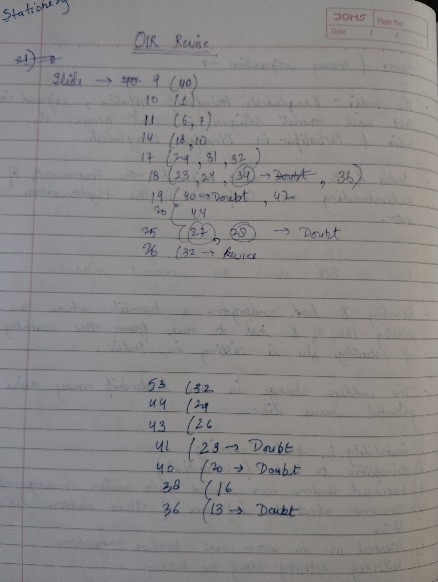 Stationery
SOHS
Page No.
Date / /
OIR Revise
Slide → 9 (40)
10 (1)
11 (6, 7)
14 (18, 10
17 (29, 31, 32)
18 (23, 24, 34 → Doubt, 36)
19 (40 → Doubt, 42
20 ( 44
25 (27, 28 → Doubt
26 (32 → Revise
53 (32
44 (29
43 (26
41 (23 → Doubt
40 (20 → Doubt
38 (16
36 (13 → Doubt